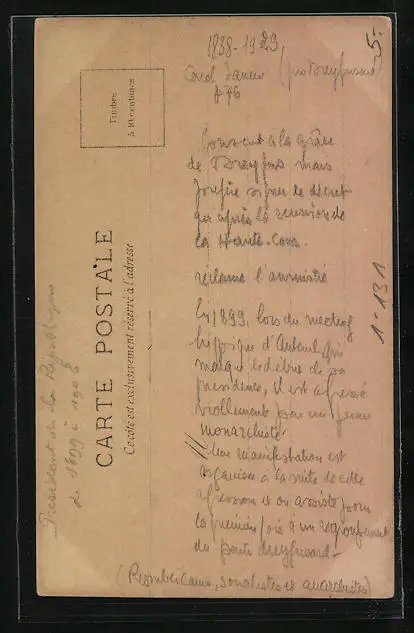 1838-1929
5.-
(pro Dreyfusard)
p 76
Consent à la grâce
de Dreyfus mais
préfère signer le décret
qu'après la réunion de
la Haute-Cour.
réclame l'amnistie
En 1899, lors du meeting
hippique d'Auteuil qui
marque le début de sa
présidence, il est agressé
violemment par un jeune
monarchiste
Une manifestation est
organisée à la suite de cette
agression et on assiste pour
la première fois à un regroupement
du parti dreyfusard-
(Républicains, socialistes et anarchistes)
1-131
Timbre
à 10 centimes
CARTE POSTALE
Ce côté est exclusivement réservé à l'adresse
Président de la République
de 1899 à 1906